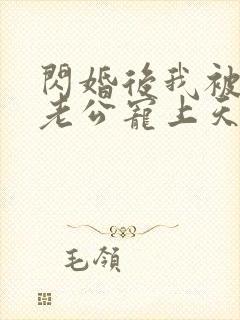 閃婚後我被
老公寵上天
毛領